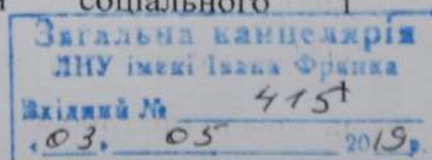 соціального
Загальна канцелярія
ЛНУ імені Івана Франка
Вхідний № 415
"03" 05 2019 р.